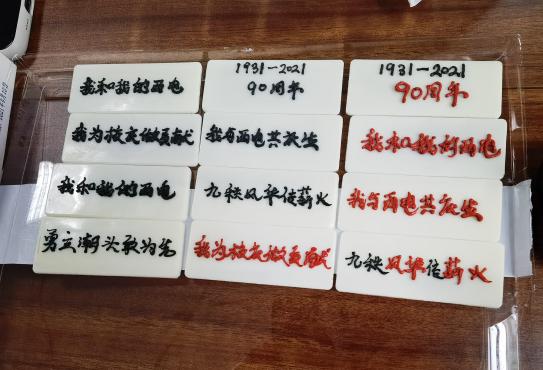 我和我的西电
1931-2021
90周年
1931-2021
90周年
我为校庆做贡献
我与西电共庆生
我和我的西电
我和我的西电
九秩风华传薪火
我与西电共庆生
勇立潮头敢为先
我为校庆做贡献
九秩风华传薪火